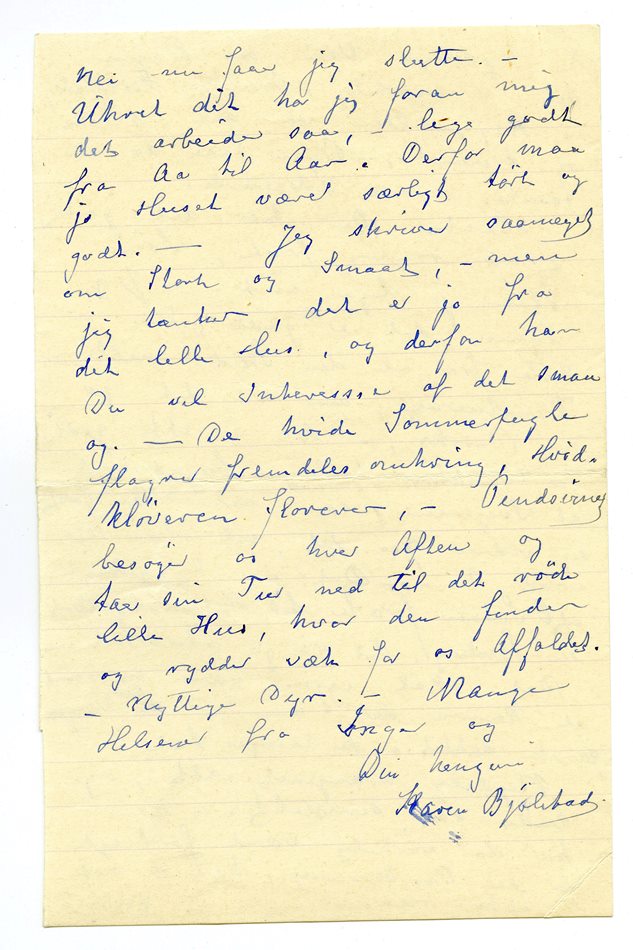 Nei nu faar jeg slutte. –
Uhret dit har jeg foran mig
det arbeider saa, – lige godt
fra Aa til Aar. Derfor maa
jo Huset været særligt tørt og
godt. — Jeg skriver saameget
om Stort og Smaat, – men
jeg tænker, det er jo fra
dit lille Hus, og derfor har
Du vel Interesse af det smaa
og. — De hvide Sommerfugle
flagrer fremdeles omkring, Hvid-
kløveren florerer, – Pindsvinet
besøger os hver Aften og
tar sin Tur ned til det røde
lille Hus, hvor den finder
og rydder væk for os Affaldet.
– Nyttige Dyr. – Mange
Helsener fra Inger og
Din hengivne
Karen Bjølstad.